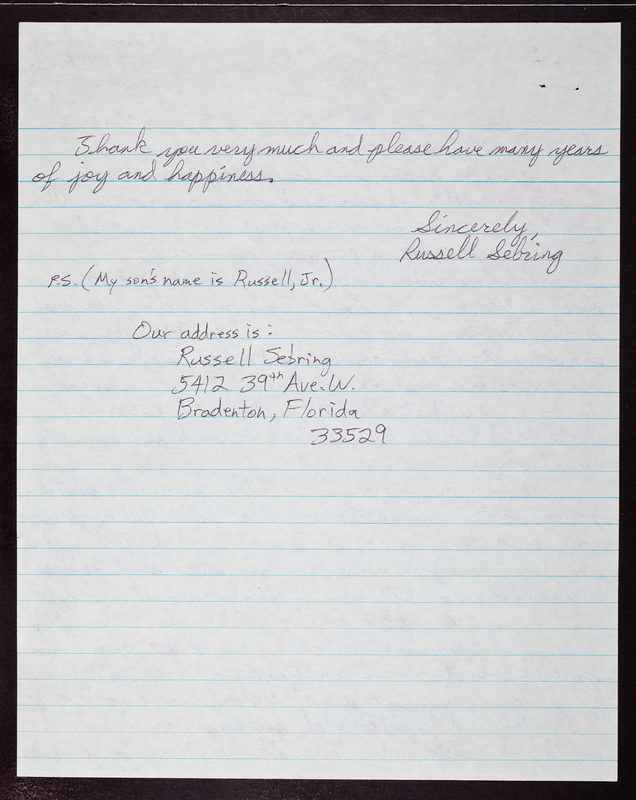 Thank you very much and please have many years
of joy and happiness.
Sincerely,
Russell Sebring
P.S. (My son's name is Russell, Jr.)
Our address is:
Russell Sebring
5412 39th Ave. W.
Bradenton, Florida
33529